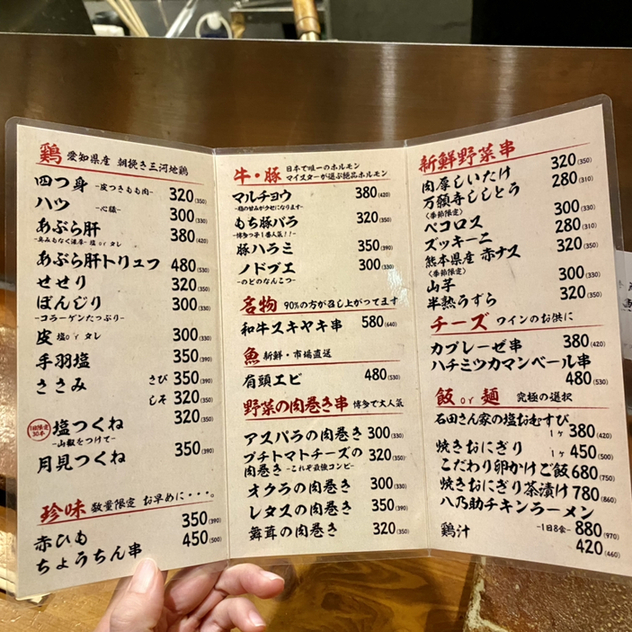 鶏 愛知県産 朝挽き三河地鶏
四つ身 -皮つきもも肉- 320(350)
ハツ -心臓- 300(330)
あぶら肝 380(420)
-臭みもなく濃厚- 塩 or タレ
あぶら肝トリュフ 480(530)
せせり 320(350)
ぼんじり 300(330)
-コラーゲンたっぷり-
皮 塩or タレ 300(330)
手羽塩 350(390)
ささみ さび 350(390)
しそ 320(350)
塩つくね 320(350)
-山椒をつけて-
月見つくね 350(390)
珍味 数量限定 お早めに・・・。
赤ひも 350(390)
ちょうちん串 450(500)
牛・豚 日本で唯一のホルモン
マイスターが選ぶ絶品ホルモン
マルチョウ 380(420)
-脂の甘みがクセになります-
もち豚バラ 320(350)
-博多っ子1番人気!!-
豚ハラミ 350(390)
ノドブエ 300(330)
-のどのなんこつ-
名物 90%の方が召し上がってます
和牛スキヤキ串 580(640)
魚 新鮮・市場直送
肩頭エビ 480(530)
野菜の肉巻き串 博多で大人気
アスパラの肉巻き 300(330)
プチトマトチーズの
肉巻き -これぞ最強コンビ- 320(350)
オクラの肉巻き 300(330)
レタスの肉巻き 350(390)
舞茸の肉巻き 320(350)
新鮮野菜串
肉厚しいたけ 320(350)
万願寺ししとう 280(310)
(季節限定)
ペコロス 300(330)
ズッキーニ 280(310)
熊本県産 赤ナス 320(350)
(季節限定)
山芋 300(330)
半熟うずら 320(350)
チーズ ワインのお供に
カプレーゼ串 380(420)
ハチミツカマンベール串
480(530)
飯 or 麺 究極の選択
石田さん家の塩おむすび
1ヶ 380(420)
焼きおにぎり 1ヶ 450(500)
こだわり卵かけご飯 680(750)
焼きおにぎり茶漬け 780(860)
八乃助チキンラーメン
-1日8食- 880(970)
鶏汁 420(460)